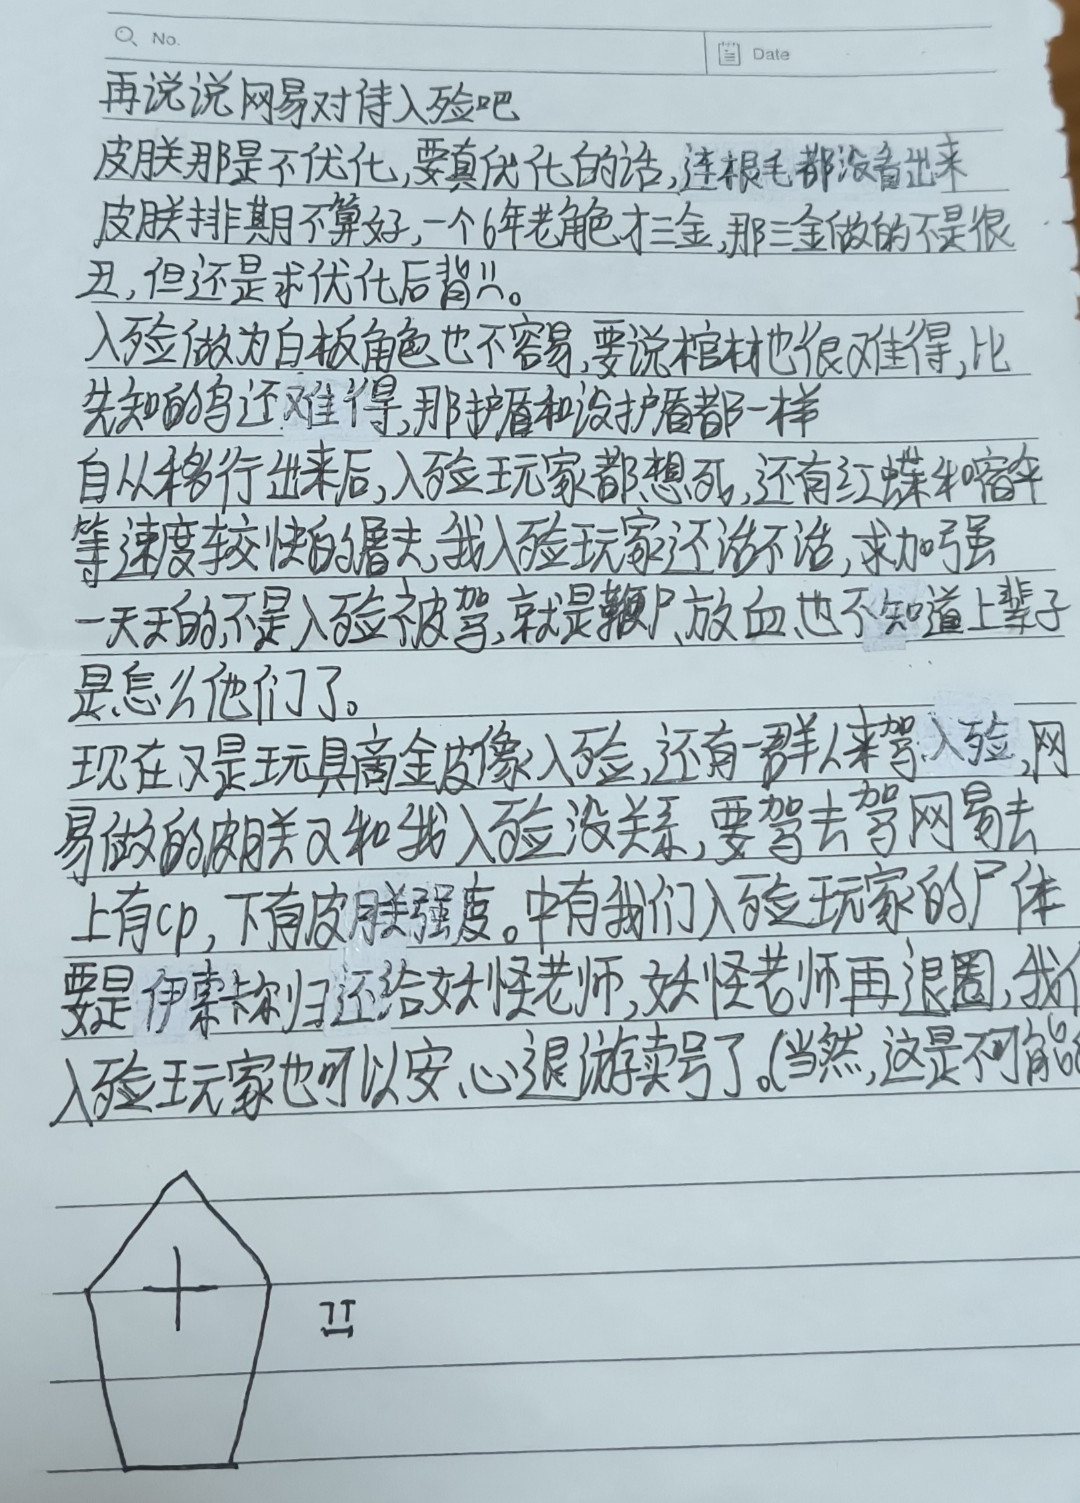 No.
Date
再说说网易对待入殓吧
皮肤那是不优化,要真优化的话,连根毛都没看出来
皮肤排期不算好,一个6年老角色才三金,那三金做的不是很
丑,但还是求优化后背!!。
入殓做为白板角色也不容易,要说棺材也很难得,比
先知的鸟还难得,那护盾和没护盾都一样
自从移行出来后,入殓玩家都想死,还有红蝶和宿伞
等速度较快的屠夫,我入殓玩家还活不活,求加强
一天天的,不是入殓被驾,就是鞭尸、放血,也不知道上辈子
是怎么他们了。
现在又是玩具商金皮像入殓,还有一群人来驾入殓,网
易做的皮肤又和我入殓没关系,要驾去驾网易去
上有cp,下有皮肤强度。中有我们入殓玩家的尸体
要是伊索卡尔归还给妖怪老师,妖怪老师再退圈,我们
入殓玩家也可以安心退游卖号了。(当然,这是不可能的